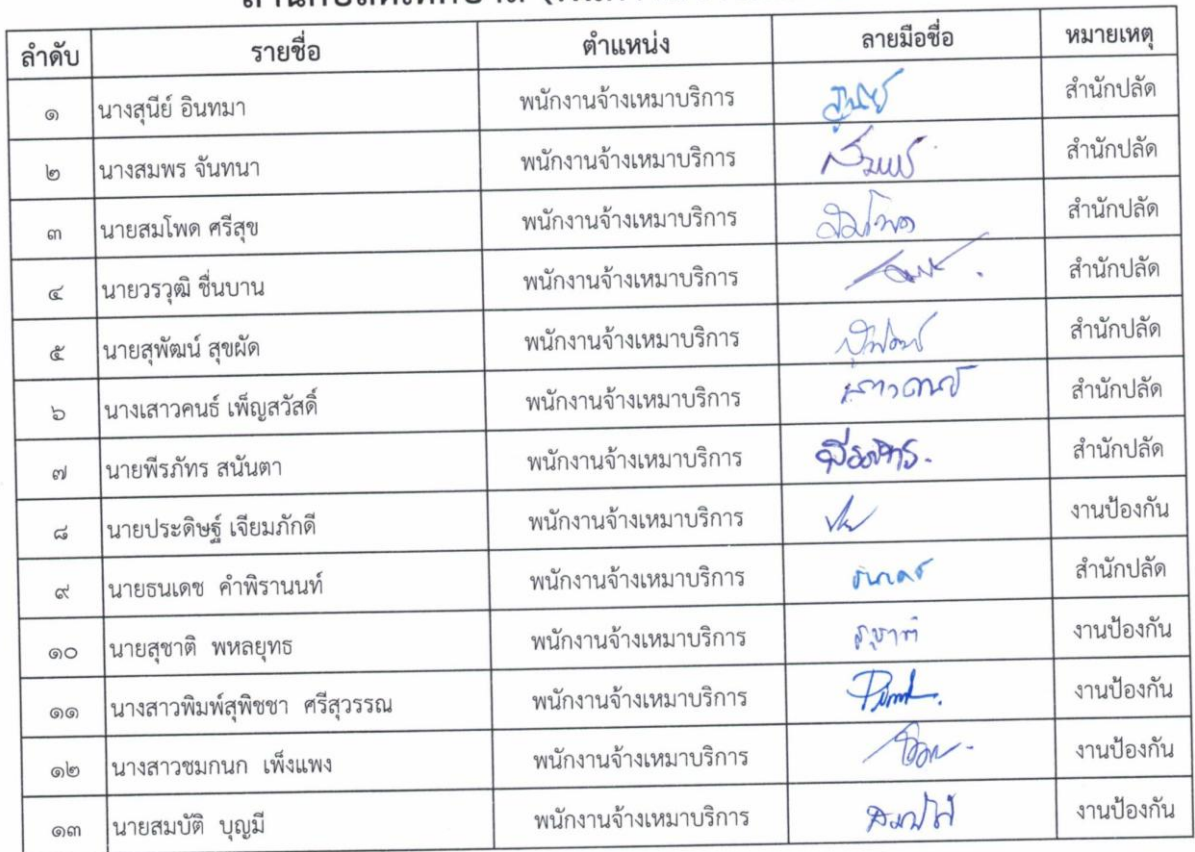 ลำดับ รายชื่อ ตำแหน่ง ลายมือชื่อ หมายเหตุ
๑ นางสุนีย์ อินทมา พนักงานจ้างเหมาบริการ สุนีย์ สำนักปลัด
๒ นางสมพร จันทนา พนักงานจ้างเหมาบริการ สมพร สำนักปลัด
๓ นายสมโพด ศรีสุข พนักงานจ้างเหมาบริการ สมโพด สำนักปลัด
๔ นายวรวุฒิ ชื่นบาน พนักงานจ้างเหมาบริการ สำนักปลัด
๕ นายสุพัฒน์ สุขผัด พนักงานจ้างเหมาบริการ สำนักปลัด
๖ นางเสาวคนธ์ เพ็ญสวัสดิ์ พนักงานจ้างเหมาบริการ เสาวคนธ์ สำนักปลัด
๗ นายพีรภัทร สนันตา พนักงานจ้างเหมาบริการ พีรภัทร. สำนักปลัด
๘ นายประดิษฐ์ เจียมภักดี พนักงานจ้างเหมาบริการ งานป้องกัน
๙ นายธนเดช คำพิรานนท์ พนักงานจ้างเหมาบริการ สำนักปลัด
๑๐ นายสุชาติ พหลยุทธ พนักงานจ้างเหมาบริการ สุชาติ งานป้องกัน
๑๑ นางสาวพิมพ์สุพิชชา ศรีสุวรรณ พนักงานจ้างเหมาบริการ งานป้องกัน
๑๒ นางสาวชมกนก เพ็งแพง พนักงานจ้างเหมาบริการ งานป้องกัน
๑๓ นายสมบัติ บุญมี พนักงานจ้างเหมาบริการ งานป้องกัน